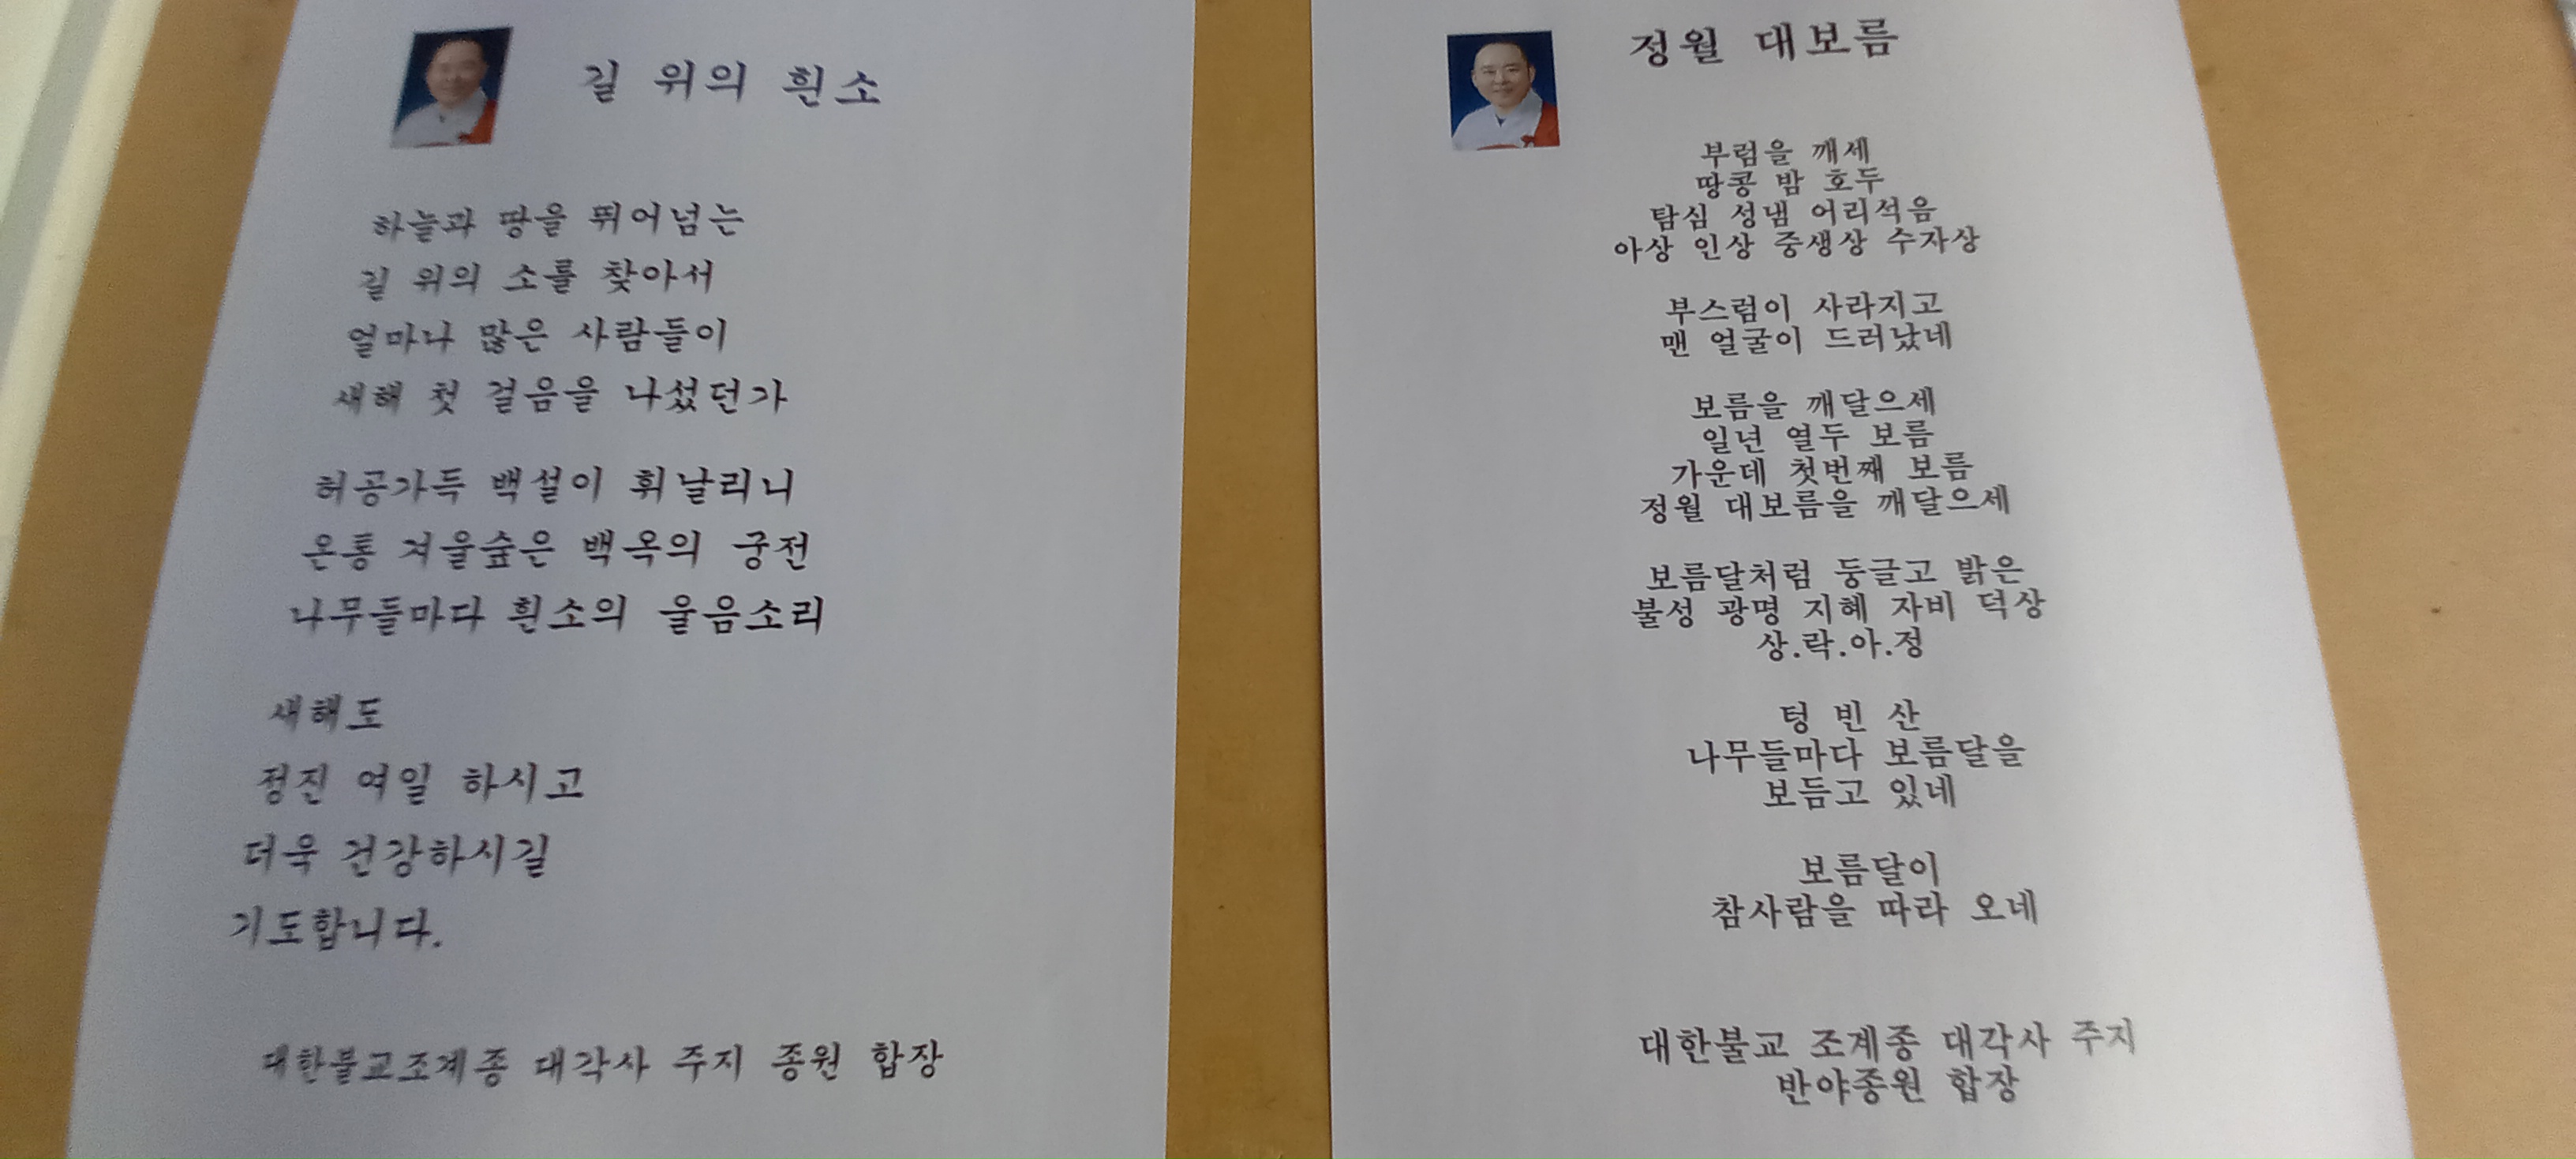 길 위의 흰소
하늘과 땅을 뛰어넘는
길 위의 소를 찾아서
얼마나 많은 사람들이
새해 첫 걸음을 나섰던가
허공가득 백설이 휘날리니
온통 겨울숲은 백옥의 궁전
나무들마다 흰소의 울음소리
새해도
정진 여일 하시고
더욱 건강하시길
기도합니다.
대한불교조계종 대각사 주지 종원 합장
정월 대보름
부럼을 깨세
땅콩 밤 호두
탐심 성냄 어리석음
아상 인상 중생상 수자상
부스럼이 사라지고
맨 얼굴이 드러났네
보름을 깨달으세
일년 열두 보름
가운데 첫번째 보름
정월 대보름을 깨달으세
보름달처럼 둥글고 밝은
불성 광명 지혜 자비 덕상
상.락.아.정
텅 빈 산
나무들마다 보름달을
보듬고 있네
보름달이
참사람을 따라 오네
대한불교 조계종 대각사 주지
반야종원 합장